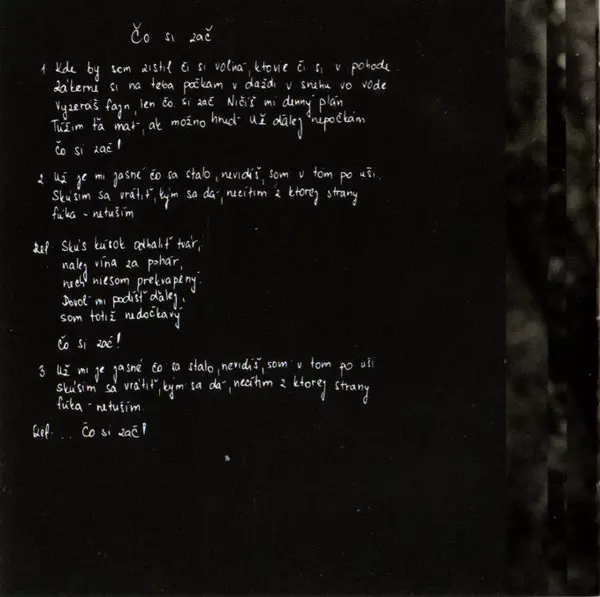 Čo si zač
1 Kde by som zistil či si voľná, ktovie či si v pohode.
Zákerne si na teba počkám v daždi v snehu vo vode
Vyzeráš fajn, len čo si zač Ničíš mi denný plán
Túžim ťa mať, ak možno hneď Už ďalej nepočkám
Čo si zač!
2. Už je mi jasné čo sa stalo, nevidíš, som v tom po uši.
Skúsim sa vrátiť, kým sa dá, necítim z ktorej strany
fúka - netuším
Ref. Skús kúsok odhaliť tvár,
nalej vína za pohár,
nech niesom prekvapený.
Dovoľ mi podísť ďalej,
som totiž nedočkavý
Čo si zač!
3 Už mi je jasné čo sa stalo, nevidíš, som v tom po uši
skúsim sa vrátiť, kým sa dá, necítim z ktorej strany
fúka - netuším.
Ref. ... Čo si zač!